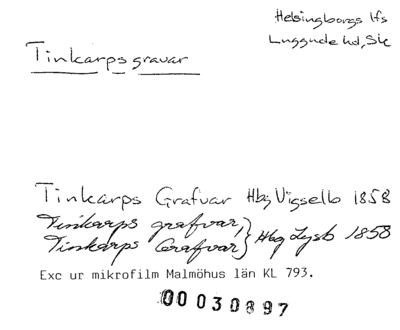 Helsingborgs lfs
Luggude hd, Sk
Tinkarps gravar
Tinkarps Grafvar Hbg Vigselb 1858
Tinkarps grafvar,
Tinkarps Grafvar } Hbg Lysb 1858
Exc ur mikrofilm Malmöhus län KL 793.
00030897